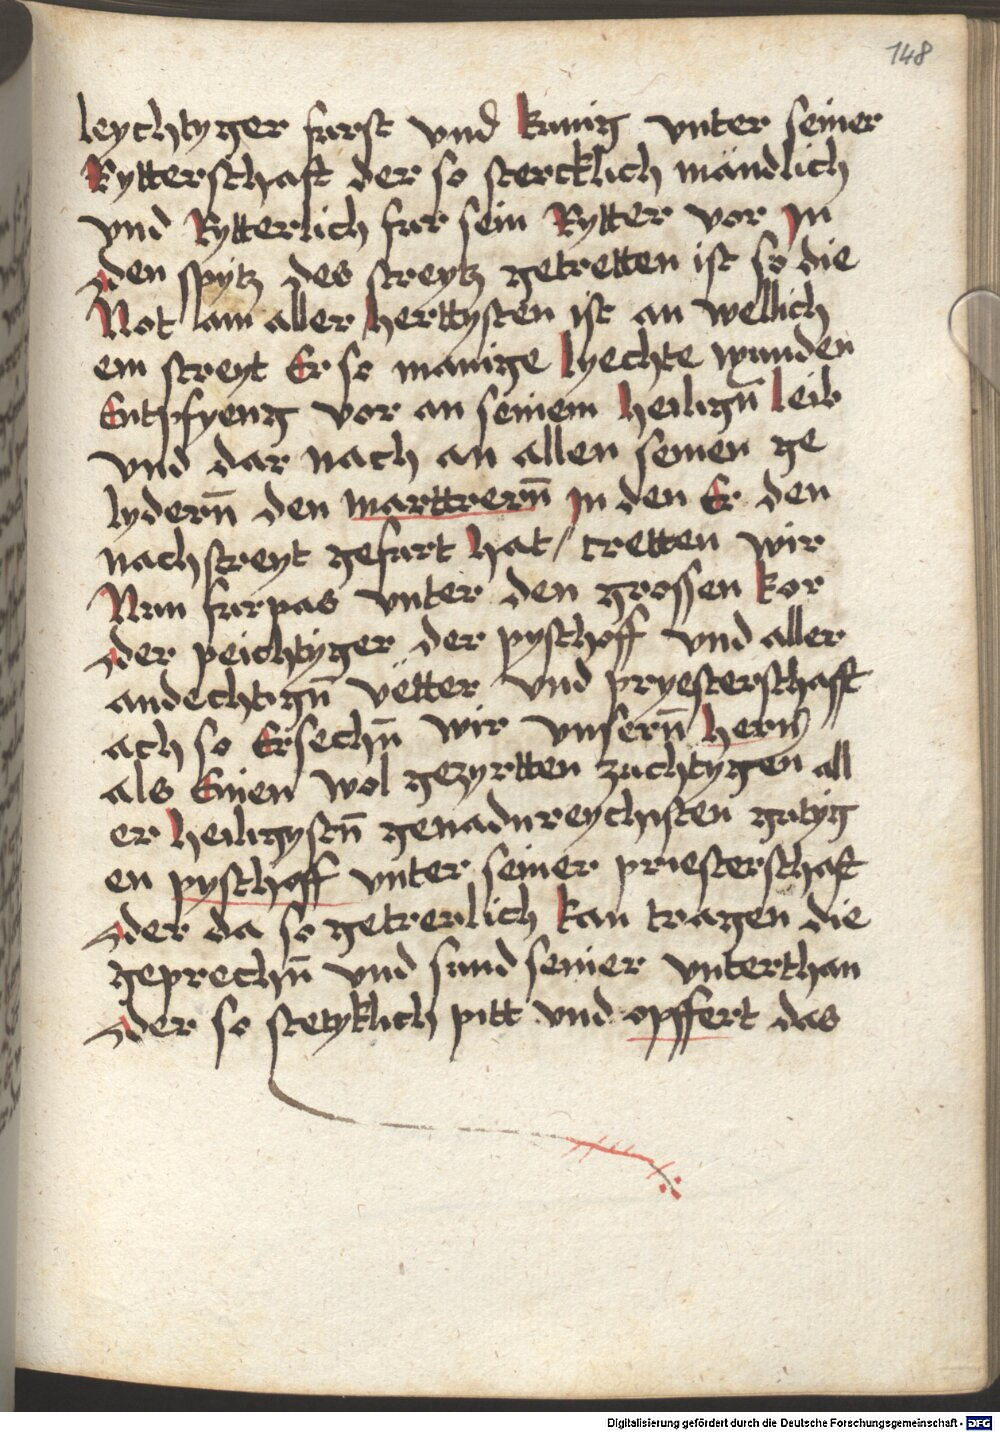 148
leychtyger furst vnd kunig vnter seiner
Rytterschaft der so stercklich mändlich
vnd Rytterlich fur sein Rytter vor in
den spytz des streytz getretten ist so die
Not am aller herttysten ist an wellich
em streyt Er so manige lyechte wunden
Entpfyeng vor an seinem heiligñ leib
vnd dar nach an allen seinen ge
lyderñ den marttrerñ jn den Er den
nachstreyt gefurt hat / tretten wir
Nun furpas vnter den grossen kor
der peichtyger der pyschoff vnd aller
andechtigñ vëtter vnd pryesterschafft
ach so Ersechñ wir vnserñ hern
als Einen wol gezyrtten zuchtygen all
er heiligystñ genadnreychisten gutyg
en pyschoff vnter seiner priesterschaft
der da so getreulich kan tragen die
geprechñ vnd sund seiner vnterthan
der so stetyklich pitt vnd opffert das
Digitalisierung gefördert durch die Deutsche Forschungsgemeinschaft - DFG